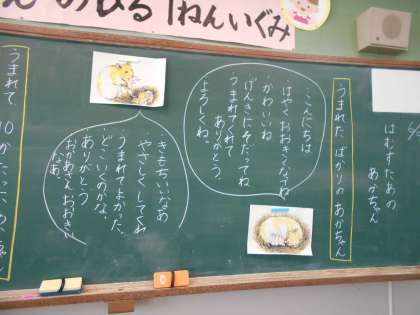 のひろ1ねんいぐみ
はむすたあの
あかちゃん
うまれたばかりのあかちゃん
・こんにちは
・はやくおおきくなってね
・かわいいね
・げんきにそだってね
・うまれてくれて
ありがとう。
よろしくね。
・きもちいいなあ
・やさしくしてくれ
・うまれてよかった。
・どこいくのかな。
・ありがとう
・おかあさん、おおきい
なあ。
うまれて
10
かたったの